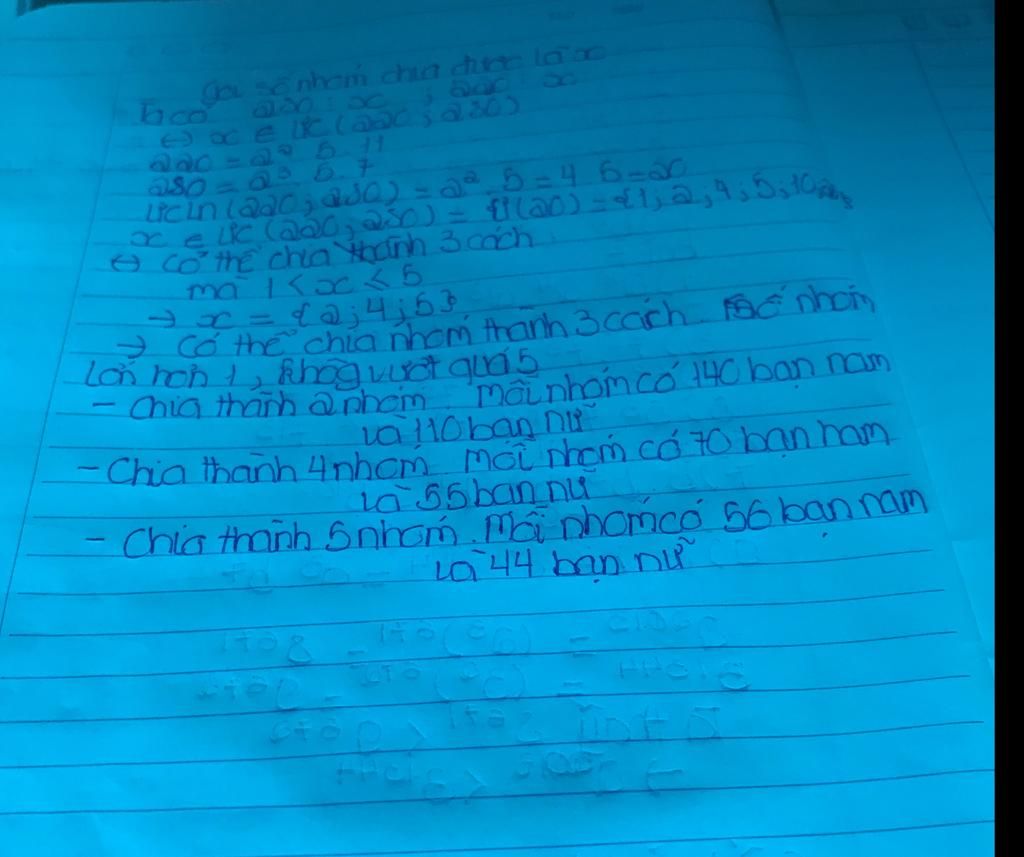 Gọi số nhóm chia được là x
Ta có 280 ⋮ x ; 220 ⋮ x
<=> x ∈ ƯC (220 ; 280)
220 = 2² . 5 . 11
280 = 2³ . 5 . 7
ƯCLN (220 ; 280) = 2² . 5 = 4 . 5 = 20
x ∈ ƯC (220 ; 280) = Ư(20) = {1 ; 2 ; 4 ; 5 ; 10 ; 20}
<=> Có thể chia thành 3 cách
mà 1 < x ≤ 5
→ x = {2 ; 4 ; 5}
→ Có thể chia nhóm thành 3 cách. Số nhóm
lớn hơn 1, không vượt quá 5
- Chia thành 2 nhóm Mỗi nhóm có 140 bạn nam
và 110 bạn nữ
- Chia thành 4 nhóm Mỗi nhóm có 70 bạn nam
và 55 bạn nữ
- Chia thành 5 nhóm. Mỗi nhóm có 56 bạn nam
và 44 bạn nữ